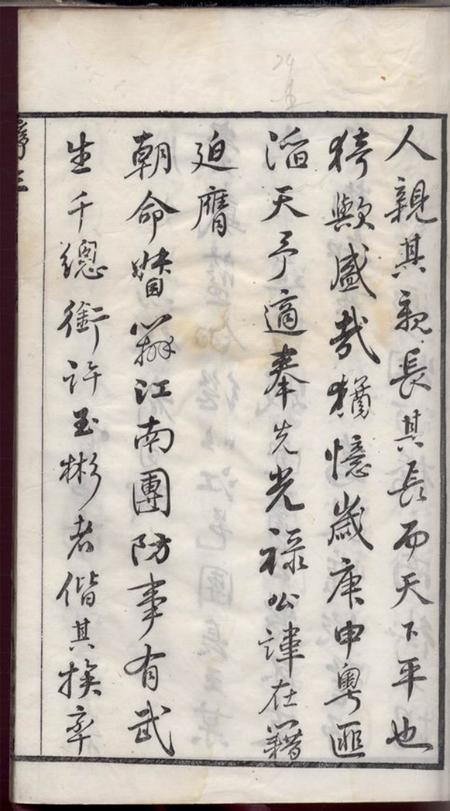 人親其親長其長而天下平也
猗歟盛哉猶憶歲庚申粵匪
滔天予適奉先光祿公諱在籍
迫膺
朝命督辦江南團防事有武
生千總銜許玉彬者偕其族卒
序三